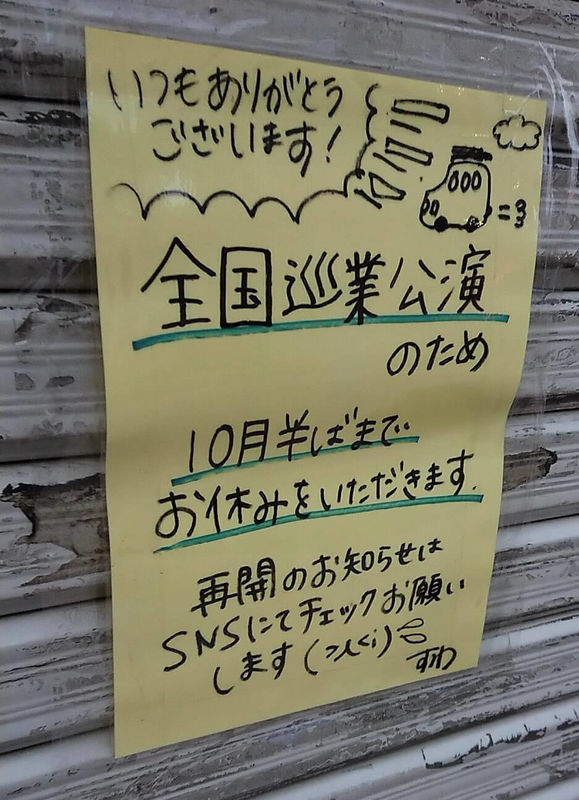 いつもありがとう
ございます!
全国巡業公演
のため
10月半ばまで
お休みをいただきます.
再開のお知らせは
SNSにてチェックお願い
します